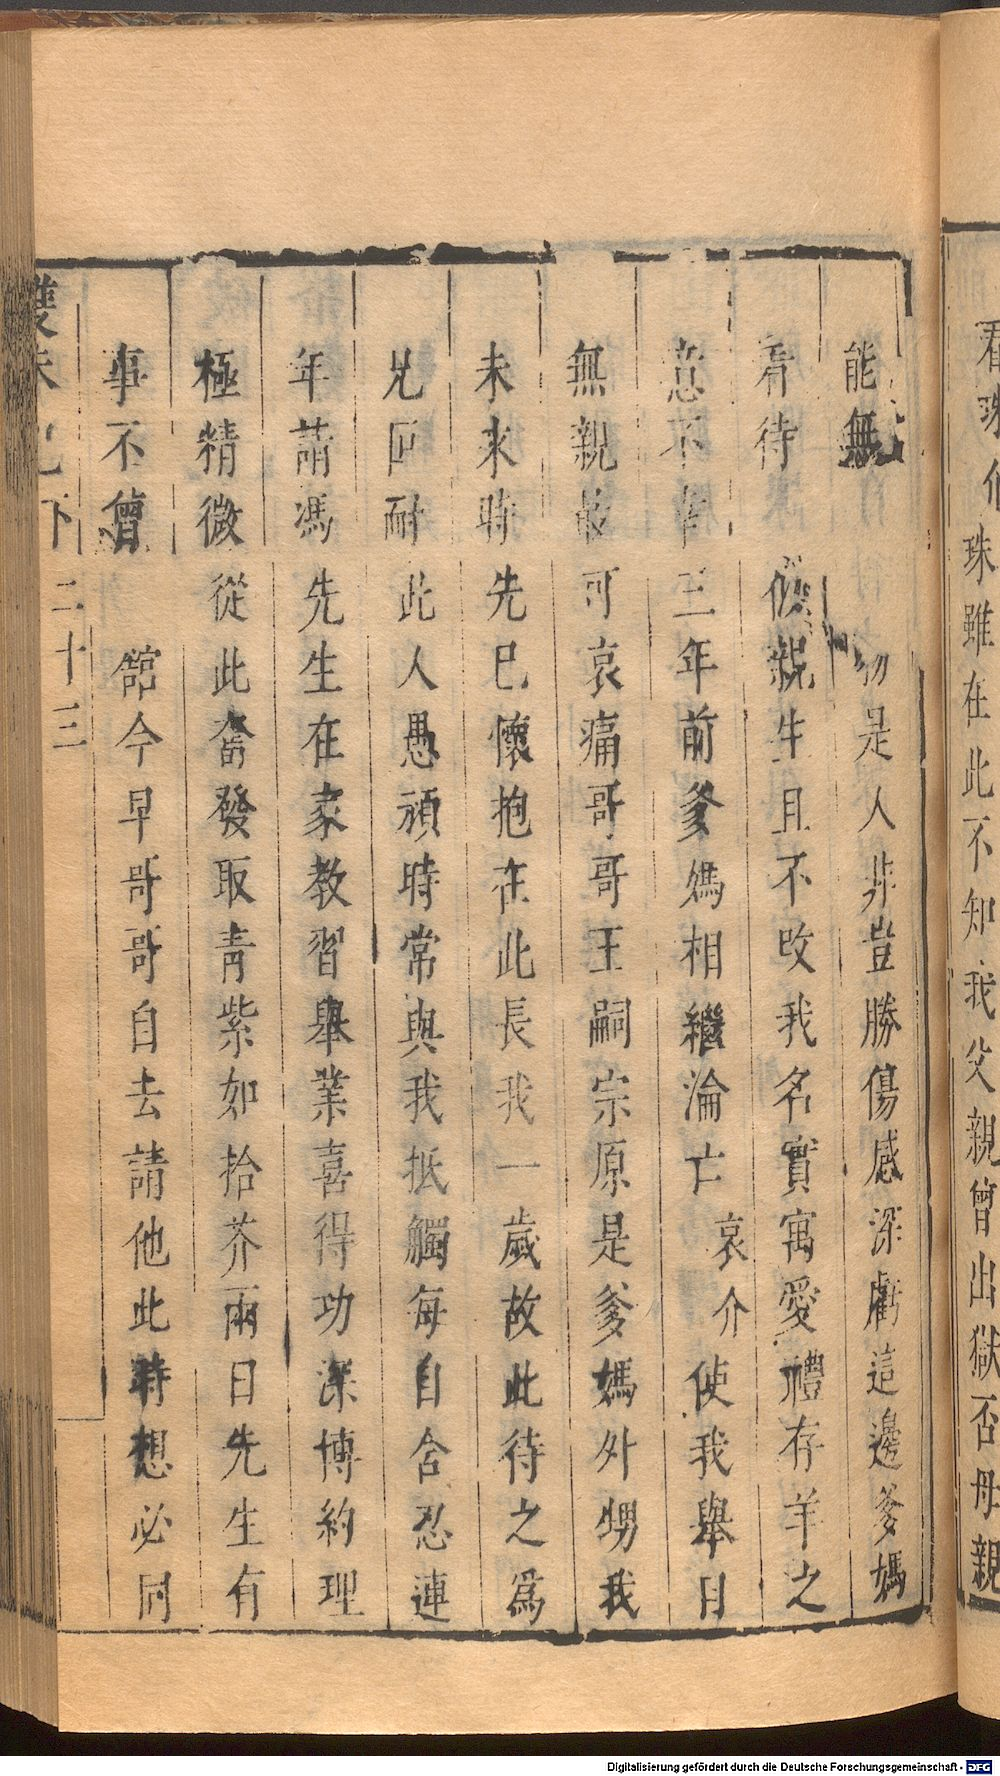 珠雖在此不知我父親曾出獄否母親
能無物是人非豈勝傷感深虧這邊爹媽
看待儼親生且不改我名實寓愛禮存羊之
意不幸三年前爹媽相繼淪亡哀介使我舉目
無親最可哀痛哥哥王嗣宗原是爹媽外甥我
未來時先已懷抱在此長我一歲故此待之為
兄叵耐此人愚頑時常與我抵觸每自含忍連
年請馮先生在家教習舉業喜得功深博約理
極精微從此奮發取青紫如拾芥兩日先生有
事不曾館今早哥哥自去請他此時想必同
雙珠記下 二十三
Digitalisierung gefördert durch die Deutsche Forschungsgemeinschaft - DFG